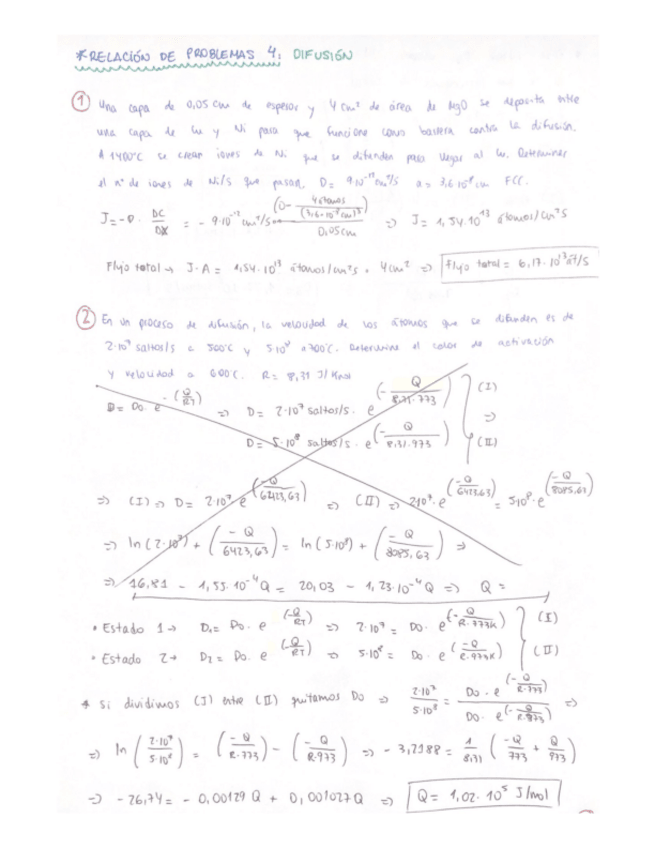 *RELACIÓN DE PROBLEMAS 4: DIFUSIÓN
① Una capa de 0,05 cm de espesor y 4 cm² de área de MgO se deposita entre
una capa de Cu y Ni para que funcione como barrera contra la difusión.
A 1400°C se crean iones de Ni que se difunden para llegar al Cu. Determinar
el nº de iones de Ni/s que pasan. D= 9·10⁻¹² cm²/s a= 3,6·10⁻⁸ cm FCC.
J=-D· DC/DX = - 9·10⁻¹² cm²/s · (0- 4 átomos/(3,6·10⁻⁸ cm)³)/0,05cm => J= 1,54·10¹³ átomos/cm²s
Flujo total → J·A = 1,54·10¹³ átomos/cm²s · 4cm² => flujo total = 6,17·10¹³ át/s
② En un proceso de difusión, la velocidad de los átomos que se difunden es de
2·10⁷ saltos/s a 500°C y 5·10⁸ a 700°C. Determine el calor de activación
y velocidad a 600°C. R= 8,31 J/Kmol
D= Do·e^-(Q/RT) => D= 2·10⁷ saltos/s · e^(-Q/8,31·773) (I)
=>
D= 5·10⁸ saltos/s · e^(-Q/8,31·973) (II)
=> (I) => D= 2·10⁷·e^(-Q/6423,63) => (II) => 2·10⁷·e^(-Q/6423,63) = 5·10⁸·e^(-Q/8085,63)
=> ln(2·10⁷) + (-Q/6423,63) = ln(5·10⁸) + (-Q/8085,63) =>
=> 16,81 - 1,55·10⁻⁴Q = 20,03 - 1,23·10⁻⁴Q => Q =
• Estado 1 → D₁= Do·e^(-Q/RT) => 2·10⁷ = Do·e^(-Q/R·773K) (I)
• Estado 2 → D₂= Do·e^(-Q/RT) => 5·10⁸ = Do·e^(-Q/R·973K) (II)
* Si dividimos (I) entre (II) quitamos Do => 2·10⁷/5·10⁸ = Do·e^(-Q/R·773)/Do·e^(-Q/R·973) =>
=> ln(2·10⁷/5·10⁸) = (-Q/R·773) - (-Q/R·973) => -3,2188 = 1/8,31 (-Q/773 + Q/973)
=> -26,74 = -0,00129Q + 0,001027Q => Q= 1,02·10⁵ J/mol